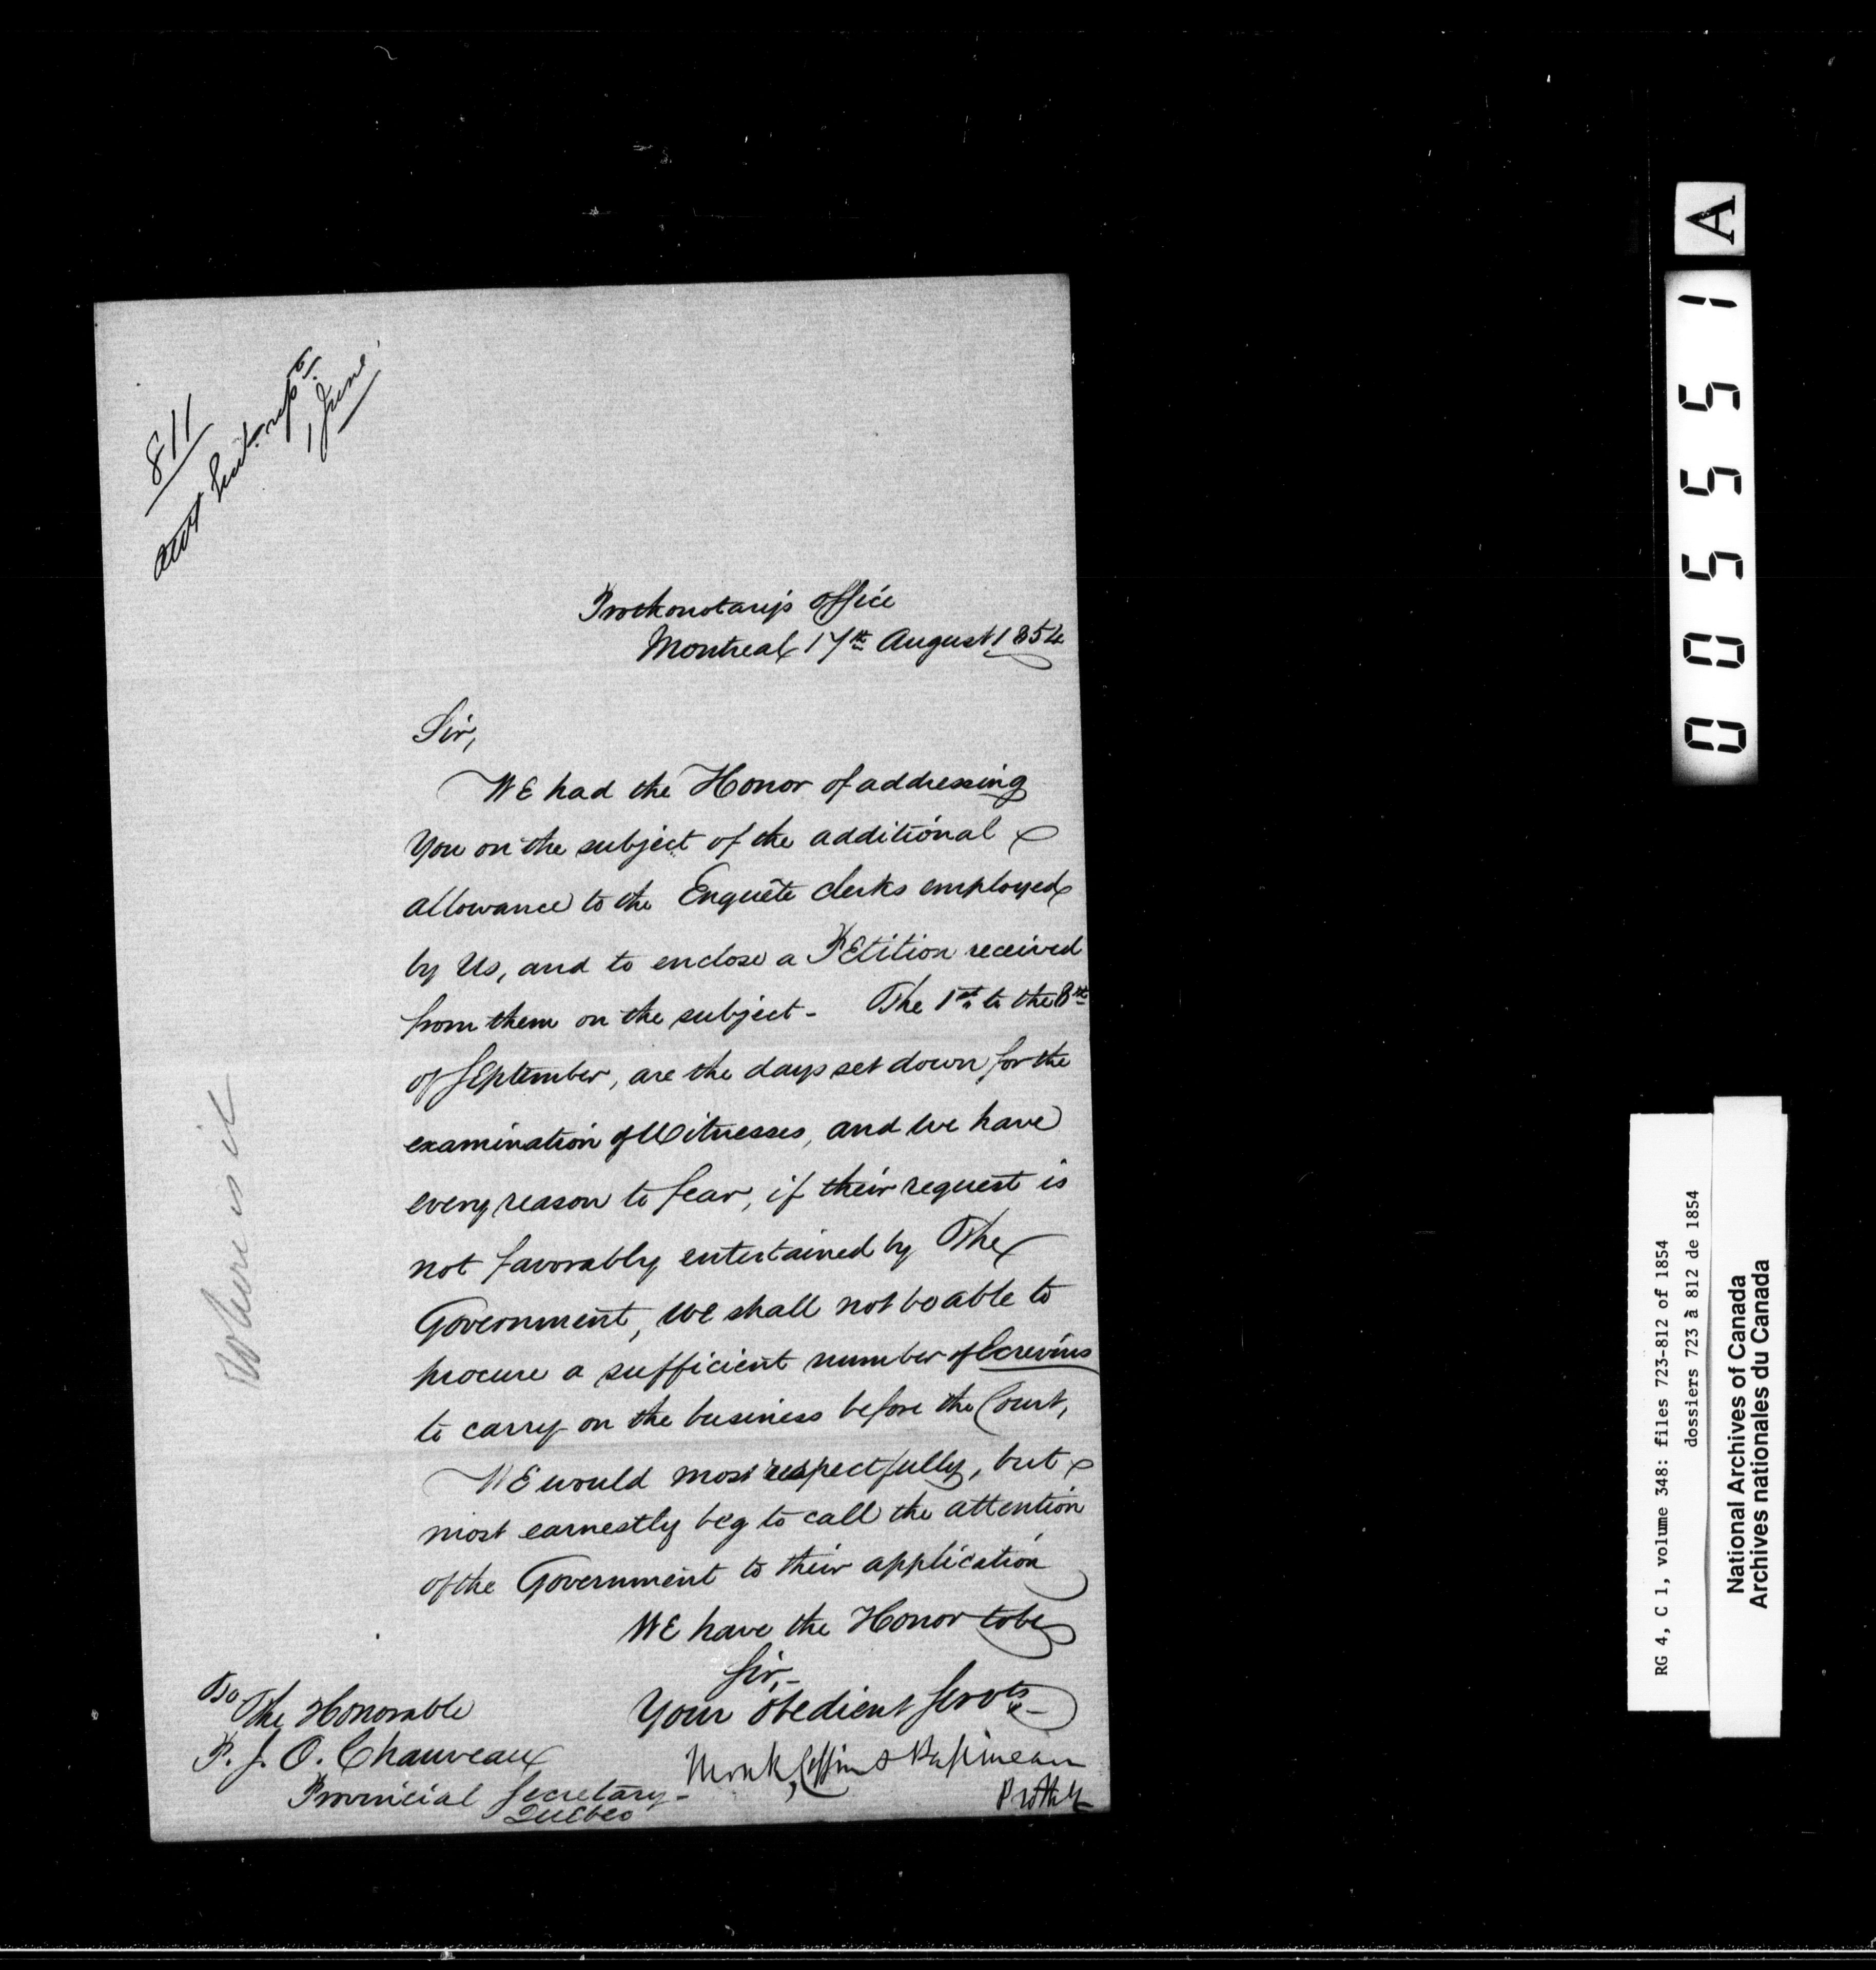 811
1 June
Prothonotary's Office
Montreal 17th August 1854
Sir,
We had the Honor of addressing
You on the subject of the additional
allowance to the Enquête clerks employed
by Us, and to enclose a Petition received
from them on the subject - The 1st to the 8th
of September, are the days set down for the
examination of Witnesses, and we have
every reason to fear, if their request is
not favorably entertained by The
Government, we shall not be able to
procure a sufficient number of Ecrivins
to carry on the business before the Court,
We would most respectfully, but
most earnestly beg to call the attention
of the Government to their application
We have the Honor to be
Sir,-
Your Obedient Servts-
Monk, Coffin & Papineau
P.
To The Honorable
P. J. O. Chauveau
Provincial Secretary-
Quebec
Where is it
A
005551
RG 4, C 1, volume 348: files 723-812 of 1854
dossiers 723 à 812 de 1854
National Archives of Canada
Archives nationales du Canada